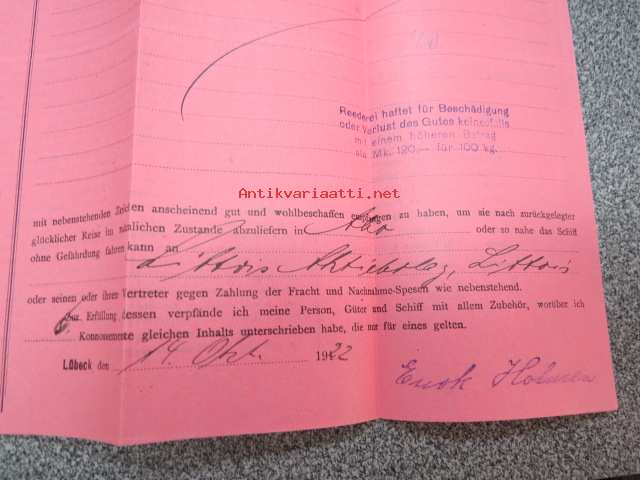 Reederei haftet für Beschädigung
oder Verlust des Gutes keinesfalls
mit einem höheren Betrag
als Mk. 120,— für 100 kg.
Antikvariaatti.net
mit nebenstehenden Zeichen anscheinend gut und wohlbeschaffen empfangen zu haben, um sie nach zurückgelegter
glücklicher Reise im nämlichen Zustande abzuliefern in Åbo oder so nahe das Schiff
ohne Gefährdung fahren kann an
Littois Aktiebolag, Littois
oder seinem oder ihren Vertreter gegen Zahlung der Fracht und Nachnahme-Spesen wie nebenstehend.
Zur Erfüllung dessen verpfände ich meine Person, Güter und Schiff mit allem Zubehör, worüber ich
6 Konnossemente gleichen Inhalts unterschrieben habe, die nur für eines gelten.
Lübeck den 14. Okt. 1922
Enok Holmen